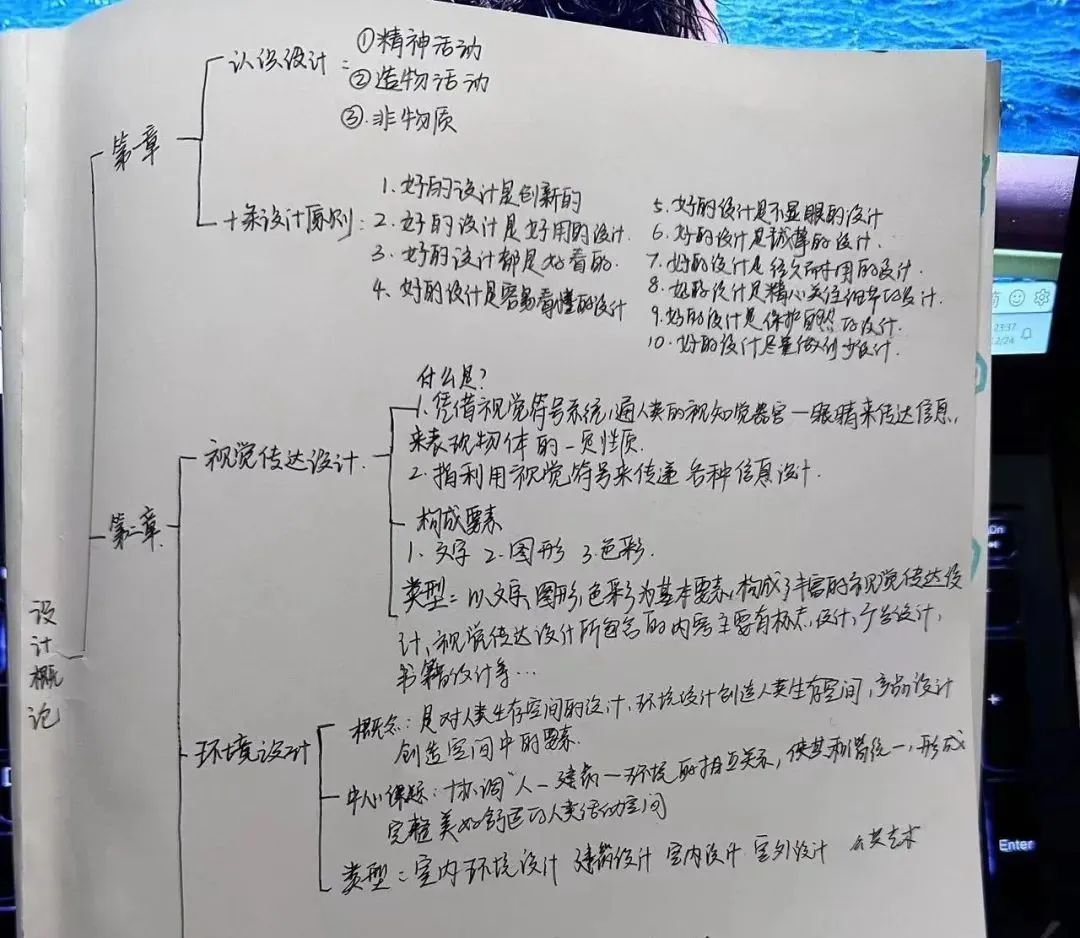 设计概论
第一章
认识设计：
①精神活动
②造物活动
③.非物质
十条设计原则：
1.好的设计是创新的
2.好的设计是好用的设计.
3.好的设计都是好看的.
4.好的设计是容易看懂的设计
5.好的设计是不显眼的设计
6.好的设计是诚实的设计.
7.好的设计是经久耐用的设计.
8.好的设计是精心关注细节的设计.
9.好的设计是保护自然的设计.
10.好的设计尽量做到少设计.
第二章
视觉传达设计.
什么是?
1.凭借视觉符号系统,通人类的视知觉器官一眼睛来传达信息,
来表现物体的一 性质.
2.指利用视觉符号来传递各种信息设计.
构成要素
1、文字 2.图形 3.色彩.
类型：以文字、图形,色彩为基本要素,构成了丰富的视觉传达设
计,视觉传达设计所包含的内容主要有标志,设计,广告设计,
书籍的设计等…
环境设计
概念：是对人类生存空间的设计、环境设计创造人类生存空间,产品设计
创造空间中的要素.
中心课题：协调"人一建筑一环境的相互关系,使其和谐统一,形成
完整美好舒适的人类活动空间
类型：室内环境设计 建筑设计 室内设计 室外设计 公共艺术
23:37
2/24
Enter